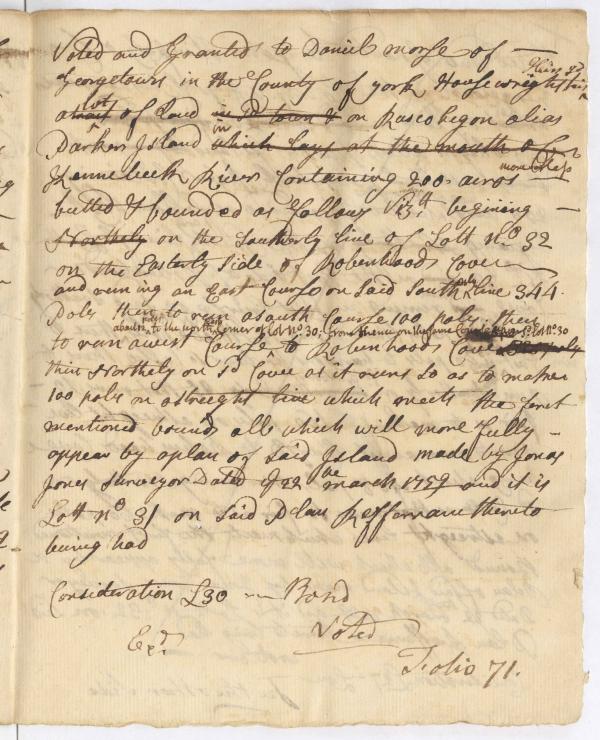 Voted and Granted to Daniel morse of —
Georgetown in the County of york Housewright
a lot of Land in sd town & on Rascohegon alias
Parkers Island in which lays at the mouth of
more or less
Kennebeck River Containing 200 acres
butted & bounded as follows Vizt begining —
Northely on the Southerly line of Lott No. 32
on the Easterly Side of Robenhoods Cove
and runing an East Course on said South line 344
Pole then to run a south Course 100 pole then
to the north corner of Lot No. 30: from thence on the same Course Lot No 30
to run a west Course to Robenhoods Cove
then Northely on sd Cove as it runs so as to make
100 pole on a streight line which meets the first
mentioned bounds all which will more fully
appear by a plan of said Island made by Jonas
Jones Surveyor Dated ye 22 march 1759 and it is
Lott No 31 on said Plan Refferance thereto
being had
Consideration £30 — Bond
Voted
Exd.
Folio 71.